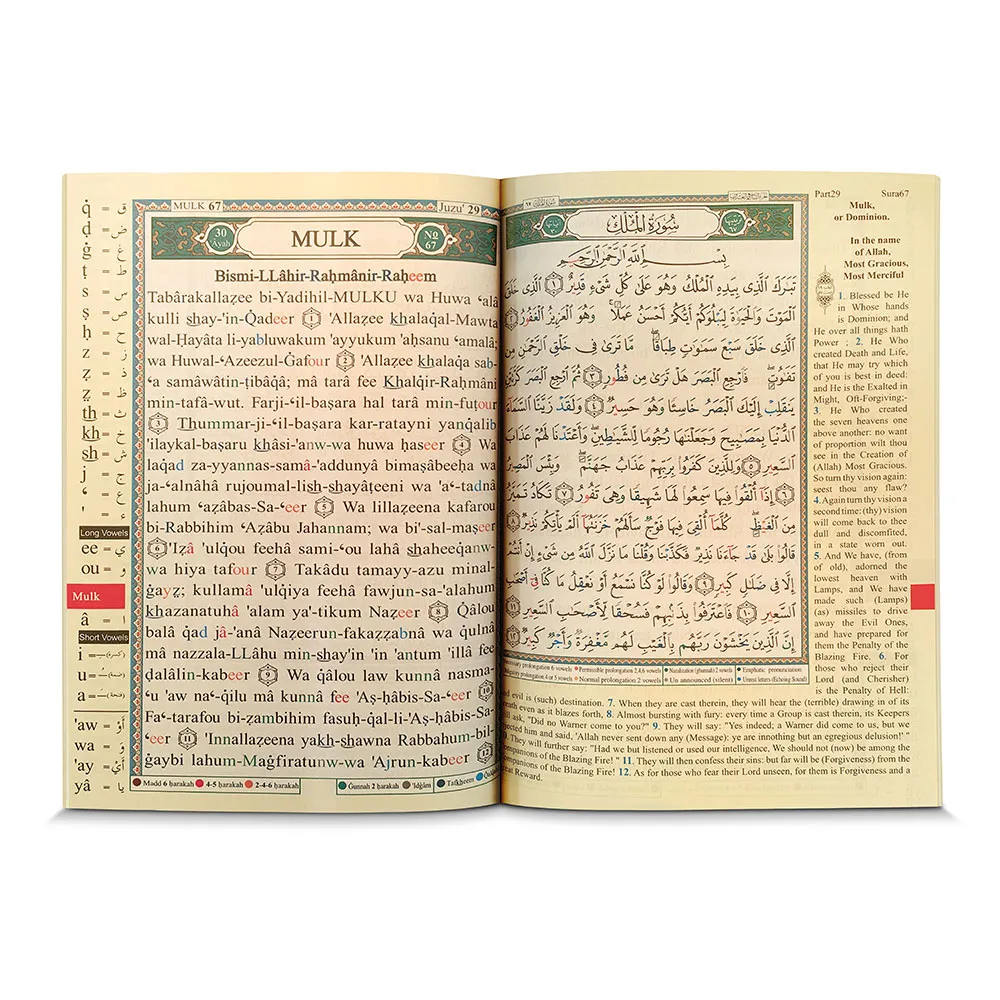 q̇ = ق
ḍ = ض
ġ = غ
ṭ = ط
s = س
ṣ = ص
ḥ = ح
z = ز
ẓ = ظ
th = ث
kh = خ
sh = ش
j = ج
ʻ = ع
' = ء
Long Vowels
ee = ي
ou = و
Mulk
â = ا
Short Vowels
i =
u =
a =
'aw = أَوْ
wa = وَ
'ay = أَيْ
yâ = يا
MULK 67
Juzu' 29
30 'Âyah
MULK
No 67
Bismi-LLâhir-Raḥmânir-Raḥeem
Tabârakallaẓee bi-Yadihil-MULKU wa Huwa ʻalâ
kulli shay-'in-Q̇adeer 1 'Allaẓee khalaqal-Mawta
wal-Ḥayâta li-yabluwakum 'ayyukum 'aḥsanu ʻamalâ;
wa Huwal-ʻAzeezul-Ġafour 2 'Allaẓee khalaqa sab-
ʻa samâwâtin-ṭibâqâ; mâ tarâ fee Khalqir-Raḥmâni
min-tafâ-wut. Farji-ʻil-baṣara hal tarâ min-fuṭour
3 Thummar-ji-ʻil-baṣara kar-ratayni yanqalib
'ilaykal-baṣaru khâsi-'anw-wa huwa ḥaseer 4 Wa
laqad za-yyannas-samâ-'addunyâ bimaṣâbeeḥa wa
ja-ʻalnâhâ rujoumal-lish-shayâṭeeni wa 'aʻ-tadnâ
lahum ʻaẓâbas-Sa-ʻeer 5 Wa lillaẓeena kafarou
bi-Rabbihim ʻAẓâbu Jahannam; wa bi'-sal-maṣeer
6 'Iẓâ 'ulqou feehâ sami-ʻou lahâ shaheeqanw-
wa hiya tafour 7 Takâdu tamayy-azu minal-
ġayẓ; kullamâ 'ulqiya feehâ fawjun-sa-'alahum
khazanatuhâ 'alam ya'-tikum Naẓeer 8 Q̇âlou
balâ qad jâ-'anâ Naẓeerun-fakaẓẓabnâ wa qulnâ
mâ nazzala-LLâhu min-shay'in 'in 'antum 'illâ fee
ḍalâlin-kabeer 9 Wa qâlou law kunnâ nasma-
ʻu 'aw naʻ-qilu mâ kunnâ fee 'Aṣ-ḥâbis-Sa-ʻeer 10
Faʻ-tarafou bi-ẓambihim fasuḥ-qal-li-'Aṣ-ḥâbis-Sa-
ʻeer 11 'Innallaẓeena yakh-shawna Rabbahum-bil-
ġaybi lahum-Maġfiratunw-wa 'Ajrun-kabeer 12
Madd 6 ḥarakah 4-5 ḥarakah 2-4-6 ḥarakah Ġunnah 2 ḥarakah 'Idġâm Tafkheem
سُورَةُ الْمُلْكِ
بِسْمِ اللَّهِ الرَّحْمَٰنِ الرَّحِيمِ
تَبَارَكَ الَّذِي بِيَدِهِ الْمُلْكُ وَهُوَ عَلَىٰ كُلِّ شَيْءٍ قَدِيرٌ ١ الَّذِي خَلَقَ
الْمَوْتَ وَالْحَيَاةَ لِيَبْلُوَكُمْ أَيُّكُمْ أَحْسَنُ عَمَلًا وَهُوَ الْعَزِيزُ الْغَفُورُ ٢
الَّذِي خَلَقَ سَبْعَ سَمَاوَاتٍ طِبَاقًا مَّا تَرَىٰ فِي خَلْقِ الرَّحْمَٰنِ مِن
تَفَاوُتٍ فَارْجِعِ الْبَصَرَ هَلْ تَرَىٰ مِن فُطُورٍ ٣ ثُمَّ ارْجِعِ الْبَصَرَ كَرَّتَيْنِ
يَنقَلِبْ إِلَيْكَ الْبَصَرُ خَاسِئًا وَهُوَ حَسِيرٌ ٤ وَلَقَدْ زَيَّنَّا السَّمَاءَ
الدُّنْيَا بِمَصَابِيحَ وَجَعَلْنَاهَا رُجُومًا لِّلشَّيَاطِينِ وَأَعْتَدْنَا لَهُمْ عَذَابَ
السَّعِيرِ ٥ وَلِلَّذِينَ كَفَرُوا بِرَبِّهِمْ عَذَابُ جَهَنَّمَ وَبِئْسَ الْمَصِيرُ
٦ إِذَا أُلْقُوا فِيهَا سَمِعُوا لَهَا شَهِيقًا وَهِيَ تَفُورُ ٧ تَكَادُ تَمَيَّزُ
مِنَ الْغَيْظِ كُلَّمَا أُلْقِيَ فِيهَا فَوْجٌ سَأَلَهُمْ خَزَنَتُهَا أَلَمْ يَأْتِكُمْ نَذِيرٌ ٨
قَالُوا بَلَىٰ قَدْ جَاءَنَا نَذِيرٌ فَكَذَّبْنَا وَقُلْنَا مَا نَزَّلَ اللَّهُ مِن شَيْءٍ إِنْ أَنتُمْ
إِلَّا فِي ضَلَالٍ كَبِيرٍ ٩ وَقَالُوا لَوْ كُنَّا نَسْمَعُ أَوْ نَعْقِلُ مَا كُنَّا فِي أَصْحَابِ
السَّعِيرِ ١٠ فَاعْتَرَفُوا بِذَنبِهِمْ فَسُحْقًا لِّأَصْحَابِ السَّعِيرِ ١١
إِنَّ الَّذِينَ يَخْشَوْنَ رَبَّهُم بِالْغَيْبِ لَهُم مَّغْفِرَةٌ وَأَجْرٌ كَبِيرٌ ١٢
prolongation 6 vowels Permissible prolongation 2,4,6 vowels Nazalization (ghunnah) 2 vowels Emphatic pronunciation
prolongation 4 or 5 vowels Normal prolongation 2 vowels Un announced (silent) Unrest letters (Echoing Sound)
Part29 Sura67
Mulk,
or Dominion.
In the name
of Allah,
Most Gracious,
Most Merciful
1. Blessed be He
in Whose hands
is Dominion; and
He over all things hath
Power ; 2. He Who
created Death and Life,
that He may try which
of you is best in deed:
and He is the Exalted in
Might, Oft-Forgiving;-
3. He Who created
the seven heavens one
above another: no want
of proportion wilt thou
see in the Creation of
(Allah) Most Gracious.
So turn thy vision again:
seest thou any flaw?
4.Again turn thy vision a
second time: (thy) vision
will come back to thee
dull and discomfited,
in a state worn out.
5. And We have, (from
of old), adorned the
lowest heaven with
Lamps, and We have
made such (Lamps)
(as) missiles to drive
away the Evil Ones,
and have prepared for
them the Penalty of the
Blazing Fire. 6. For
those who reject their
Lord (and Cherisher)
is the Penalty of Hell:
and evil is (such) destination. 7. When they are cast therein, they will hear the (terrible) drawing in of its
breath even as it blazes forth, 8. Almost bursting with fury: every time a Group is cast therein, its Keepers
will ask, "Did no Warner come to you?" 9. They will say: "Yes indeed; a Warner did come to us, but we
rejected him and said, 'Allah never sent down any (Message): ye are innothing but an egregious delusion!' "
They will further say: "Had we but listened or used our intelligence, We should not (now) be among the
companions of the Blazing Fire! " 11. They will then confess their sins: but far will be (Forgiveness) from the
Companions of the Blazing Fire! 12. As for those who fear their Lord unseen, for them is Forgiveness and a
great Reward.